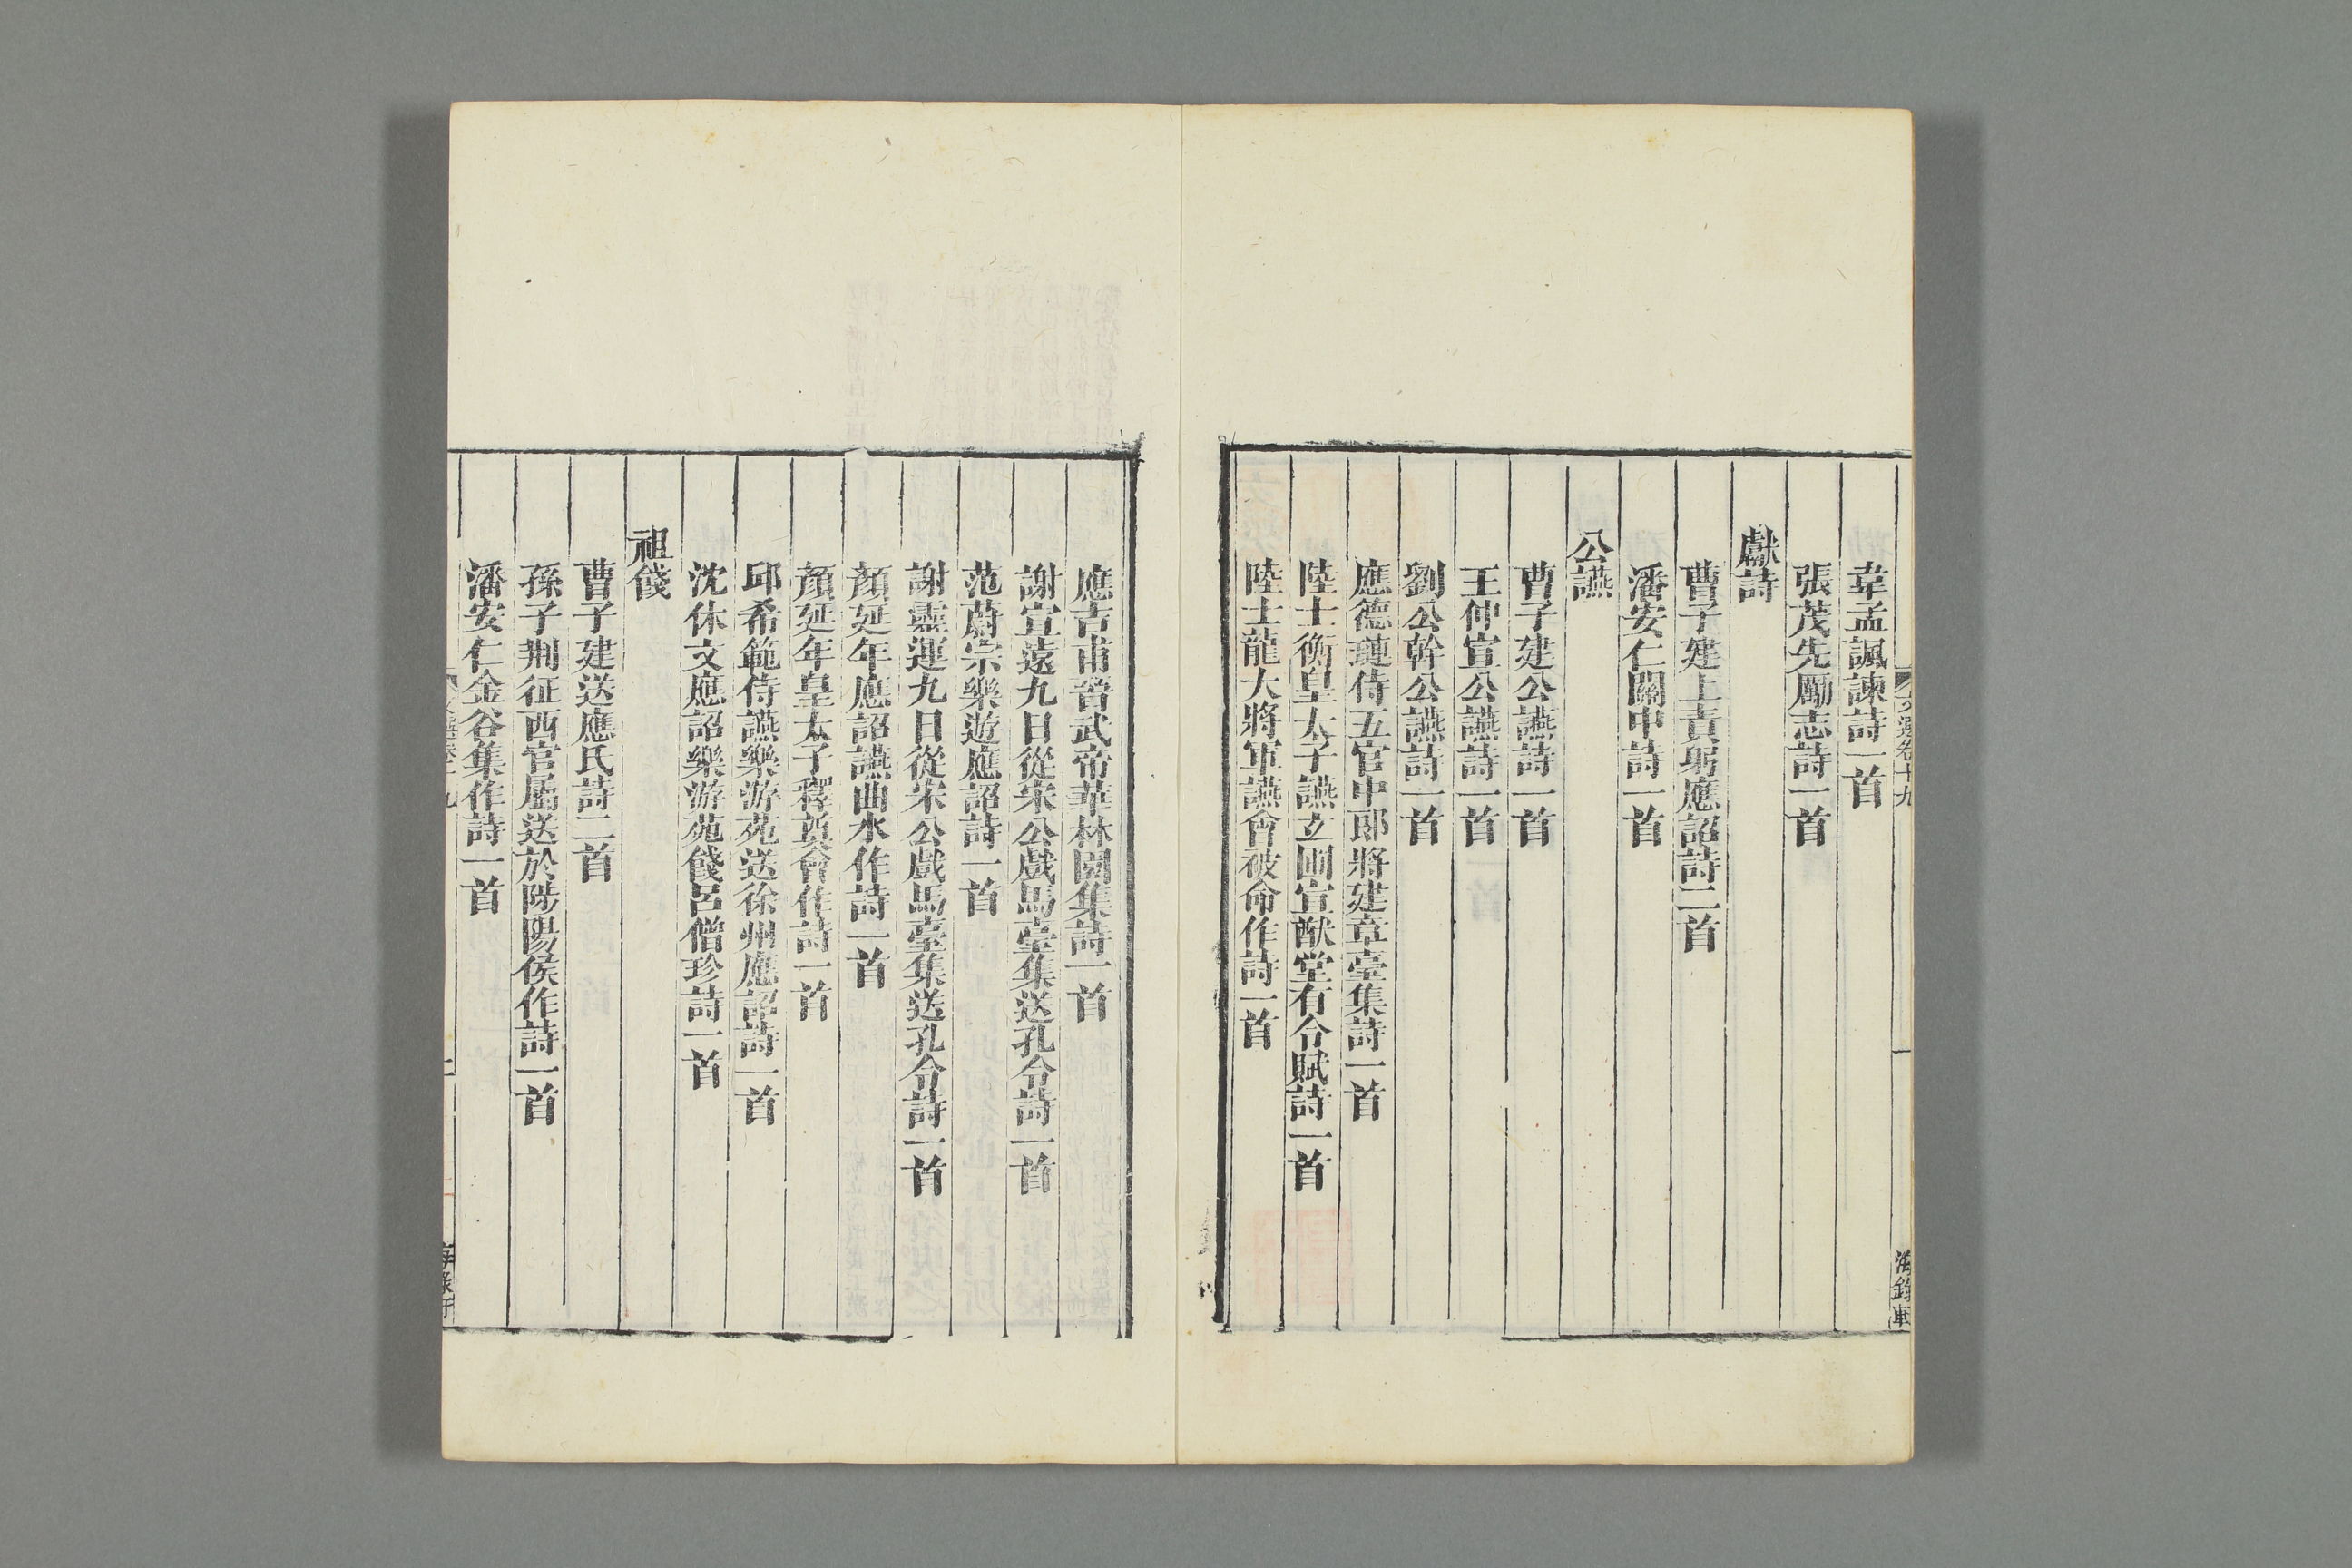 韋孟諷諫詩一首
張茂先勵志詩一首
獻詩
曹子建上責躬應詔詩二首
潘安仁關中詩一首
公讌
曹子建公讌詩一首
王仲宣公讌詩一首
劉公幹公讌詩一首
應德璉侍五官中郎將建章臺集詩一首
陸士衡皇太子讌玄圃宣猷堂有令賦詩一首
陸士龍大將軍讌會被命作詩一首
應吉甫晉武帝華林園集詩一首
謝宣遠九日從宋公戲馬臺集送孔令詩一首
范蔚宗樂遊應詔詩一首
謝靈運九日從宋公戲馬臺集送孔令詩一首
顏延年應詔讌曲水作詩一首
顏延年皇太子釋奠會作詩一首
邱希範侍讌樂游苑送徐州應詔詩一首
沈休文應詔樂游苑餞呂僧珍詩一首
祖餞
曹子建送應氏詩二首
孫子荆征西官屬送於陟陽侯作詩一首
潘安仁金谷集作詩一首
文選卷十九
海錄軒